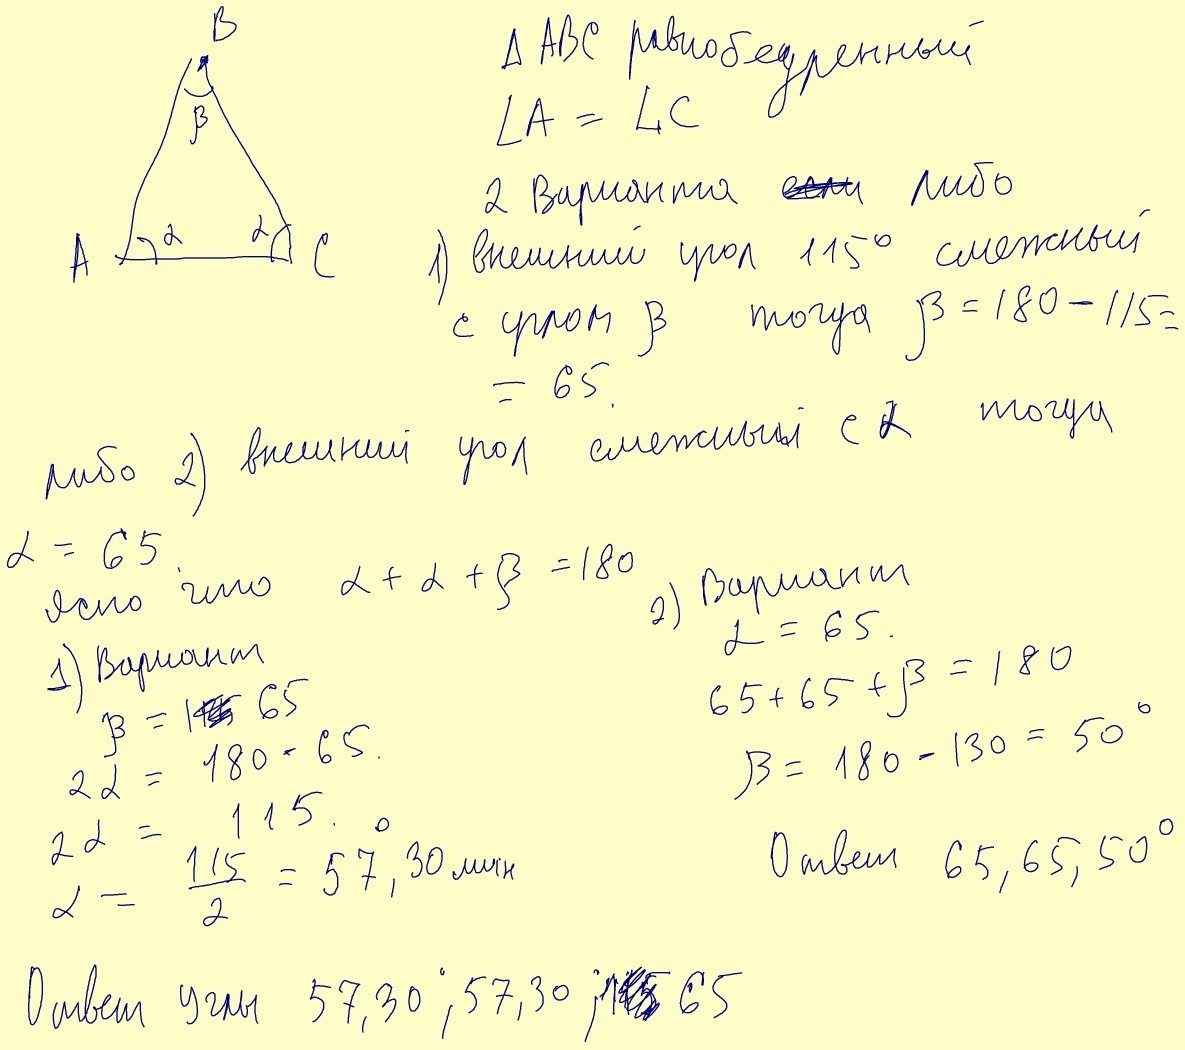 B
β
A α α C
Δ ABC равнобедренный
∠A = ∠C
2 Варианта либо
1) внешний угол 115° смежный
с углом β тогда β = 180 - 115 =
= 65.
либо 2) внешний угол смежный с α тогда
α = 65.
Ясно что α + α + β = 180
1) Вариант
β = 65
2α = 180 - 65.
2α = 115.
α = 115/2 = 57°,30 мин
Ответ углы 57,30°; 57,30; 65
2) Вариант
α = 65.
65 + 65 + β = 180
β = 180 - 130 = 50°
Ответ 65, 65, 50°